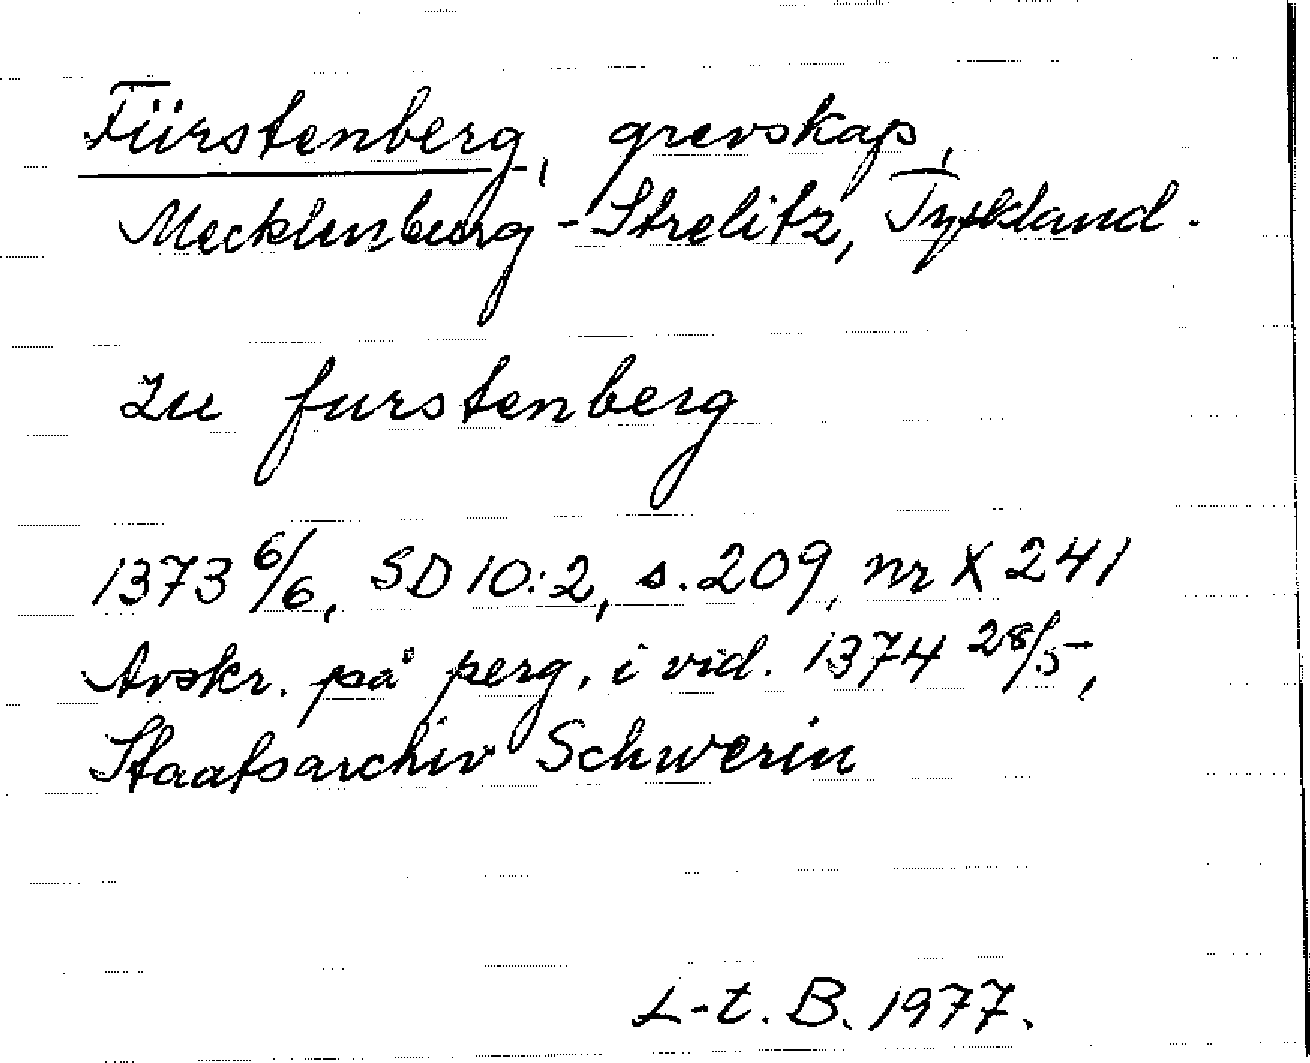 Fürstenberg, grevskap,
Mecklenburg-Strelitz, Tyskland.
zu furstenberg
1373 6/6, SD 10:2, s. 209, nr X 241
Avskr. på perg. i vid. 1374 28/5,
Staatsarchiv Schwerin
L-t. B. 1977.